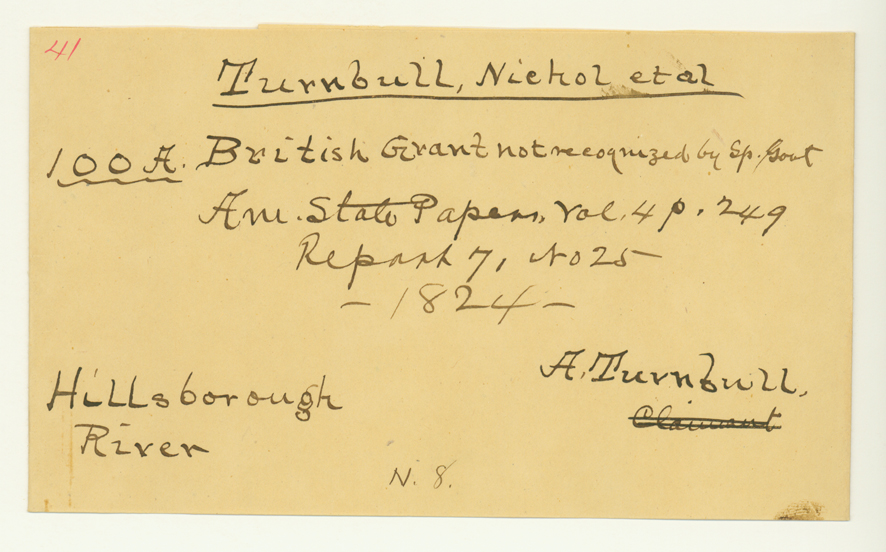 41
Turnbull, Nichol et al
100 A. British Grant not recognized by Sp. Govt
Am. State Papers, Vol. 4 p. 249
Report 7, No 25
- 1824 -
A. Turnbull,
Claimant
Hillsborough
River
N. 8.